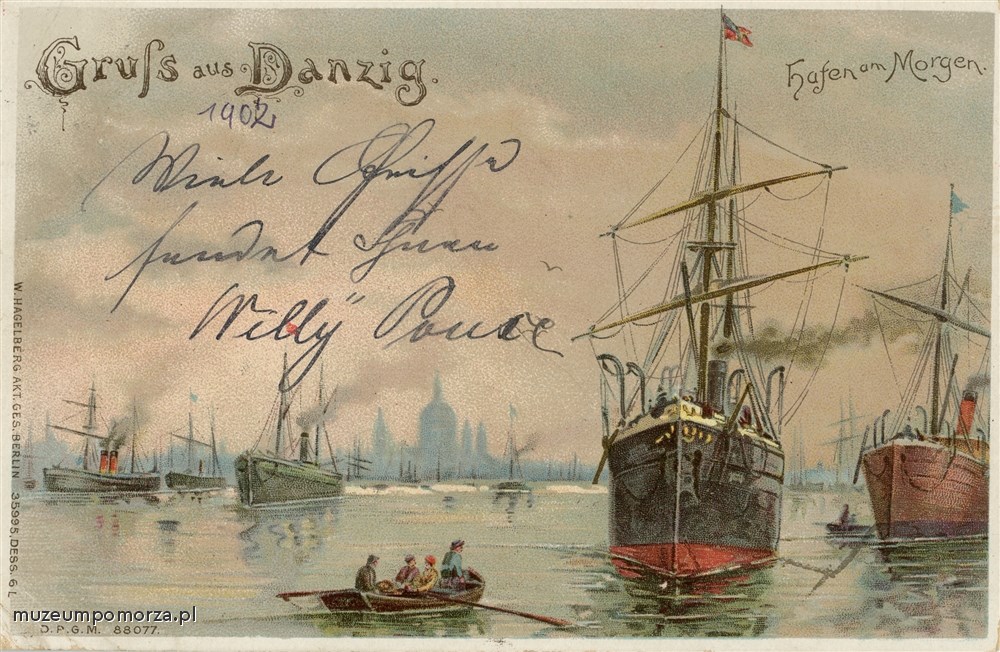 Gruſs aus Danzig.
Hafen am Morgen.
1902
Viele Grüsse
sendet Ihnen
Willy
W. HAGELBERG AKT. GES. BERLIN 35995, DESS. 6 L
muzeumpomorza.pl
D. P. G. M. 88077.